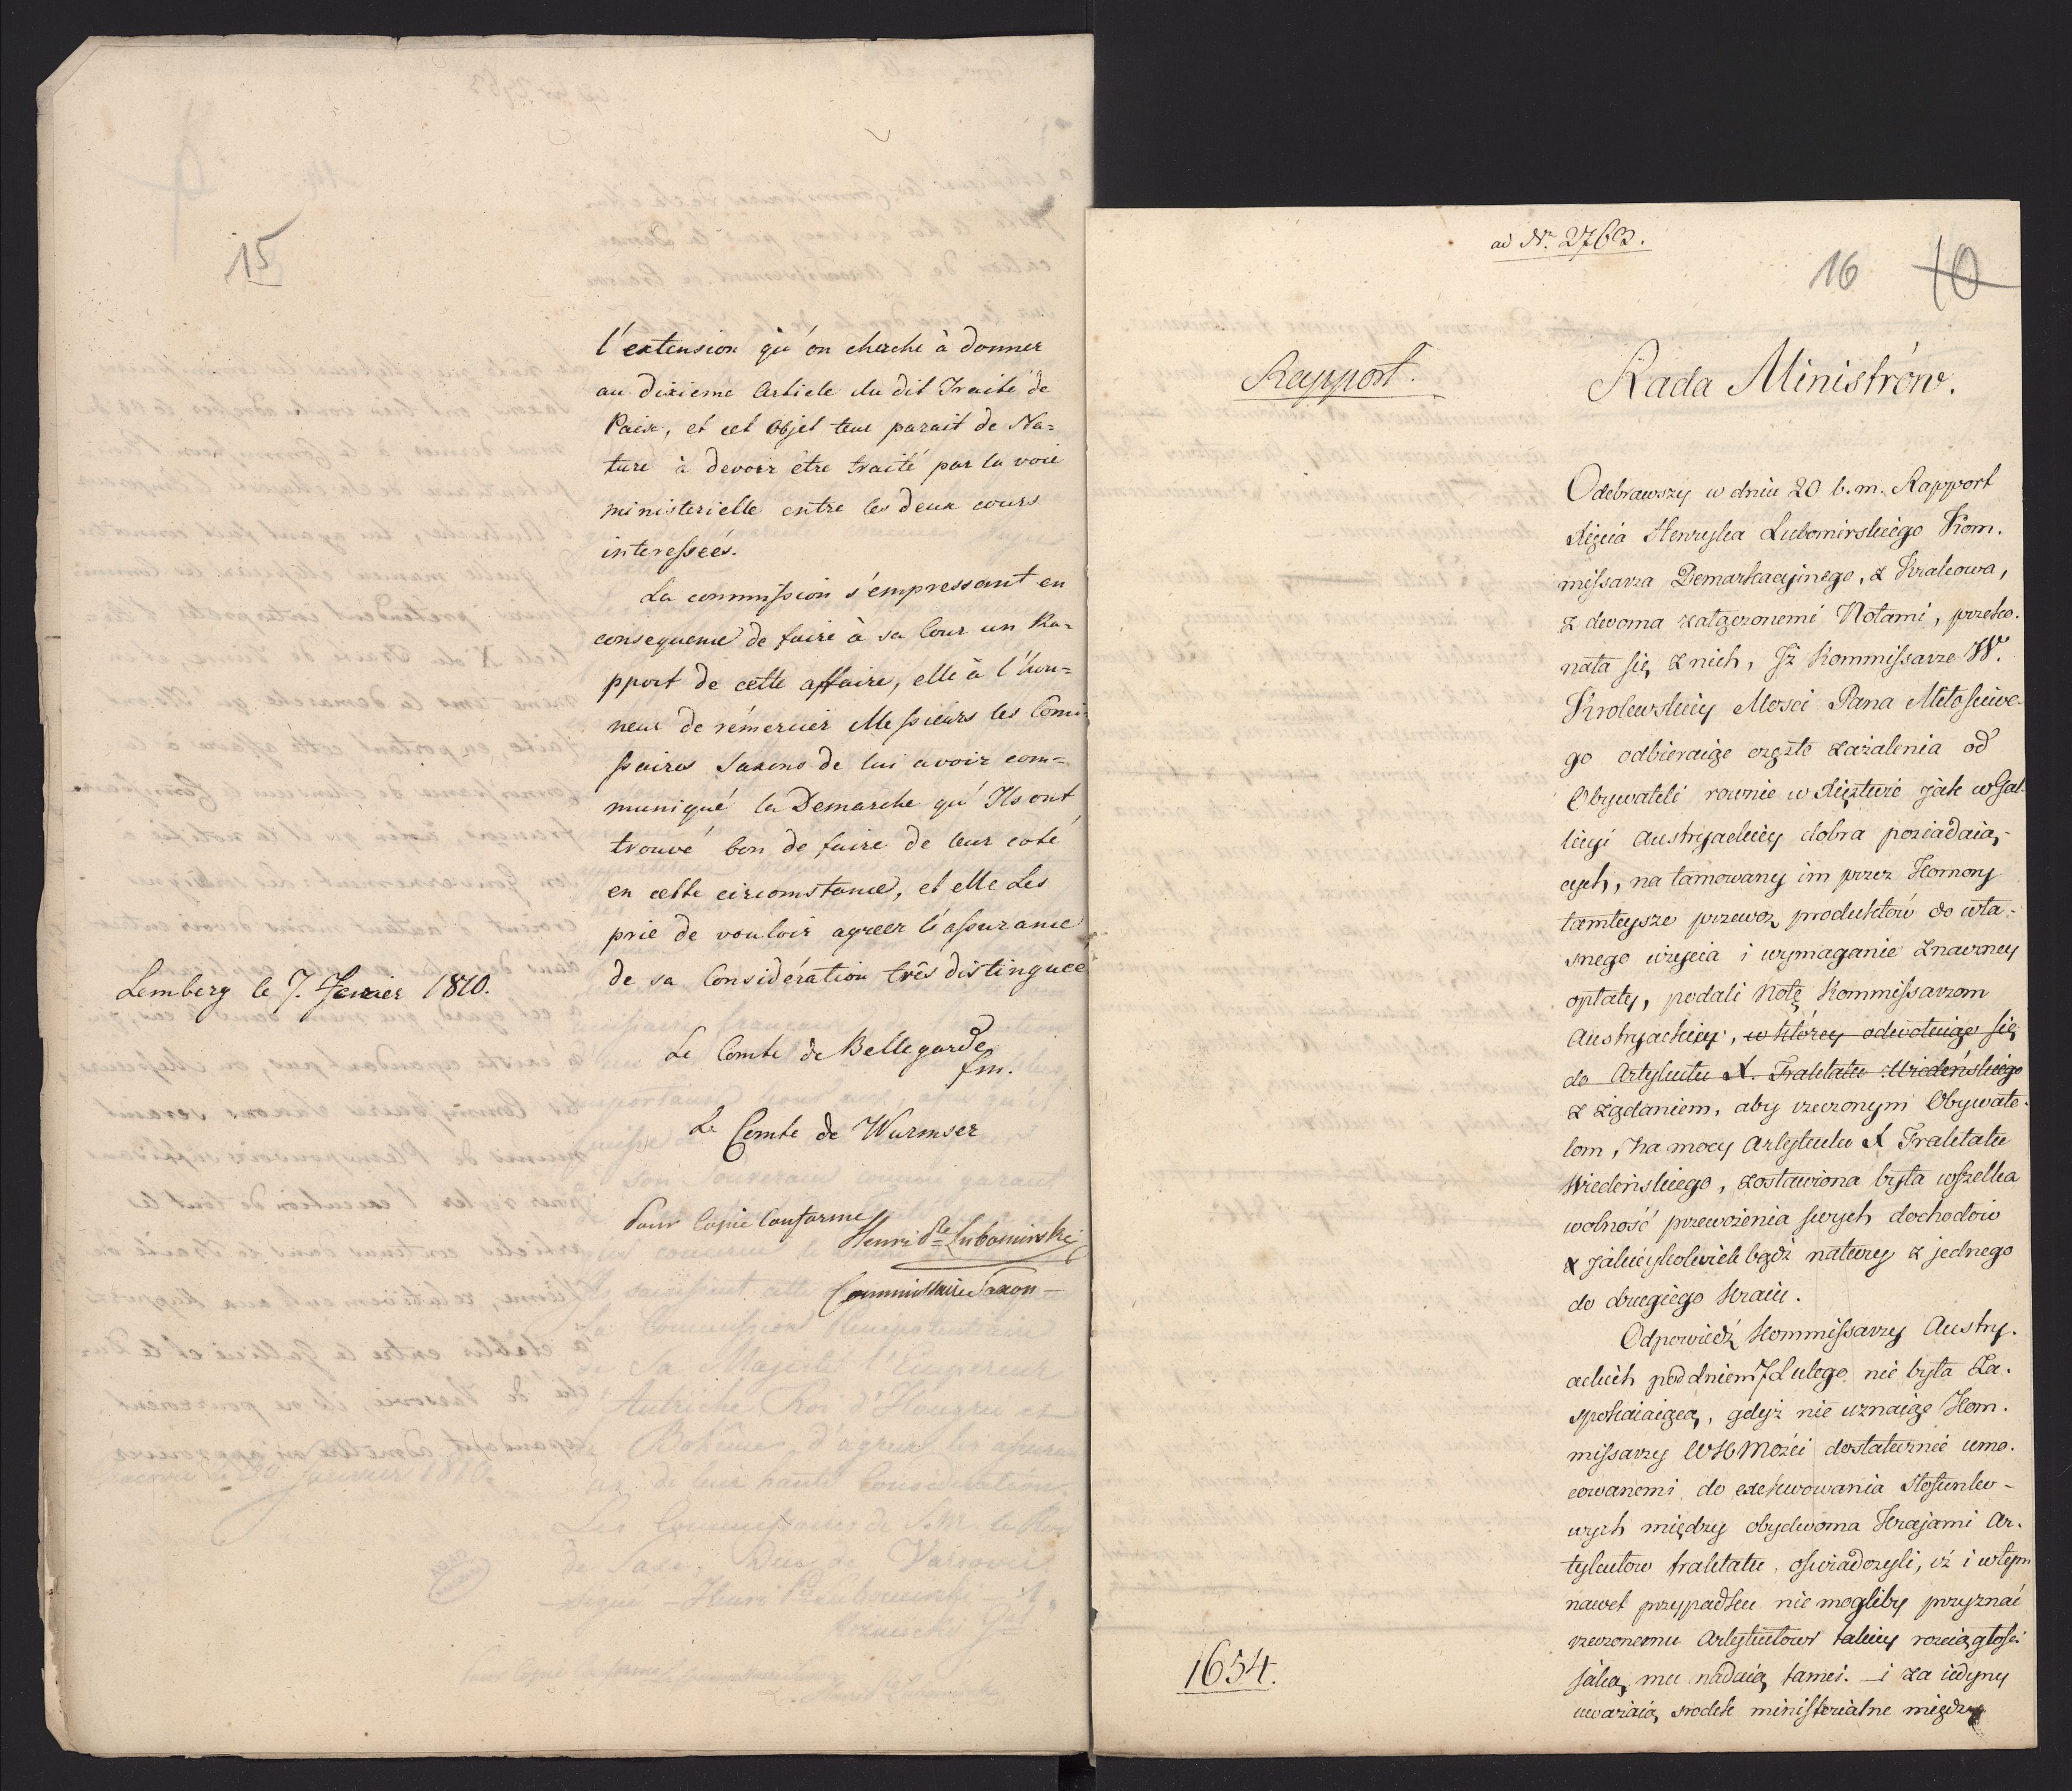 15
l'extension qu'on cherche à donner
au dixieme Article du dit Traité de
Paix, et cet Objet leur parait de Na=
ture à devoir être traité par la voie
ministerielle entre les deux cours
interessées.
La commission s'empressant en
consequence de faire à sa Cour un Ra=
pport de cette affaire, elle à l'hon=
neur de rémercier Messieurs les Comi
ssaires Saxons de lui avoir com=
muniqué la Demarche qu'Ils ont
trouvé bon de faire de leur coté
en cette circomstance, et elle Les
prie de vouloir agreer l'assurance
de sa Considération très distinguée
Lemberg le 7. Fevrier 1810.
Le Comte de Bellegarde
fm.
Le Comte de Wurmser
Pour Copie Conforme
Henri Pce Lubomirski
Commissaire Saxon
ad Nr. 2762.
16 10
Rapport.
Rada Ministrów.
Odebrawszy w dniu 20 b. m. Rapport
Xięcia Henryka Lubomirskiego Kom.
missarza Demarkacyjnego, z Krakowa,
z dwoma załączonemi Notami, przeko.
nała się z nich, Iż Kommissarze W.
Krolewskiey Mosci Pana Miłościwe.
go odbieraiąc częste zażalenia od
Obywateli rownie w Xięztwie jak w Gal.
licyi Austryackiey dobra posiadaią,
cych, na tamowany im przez Komory
tamteysze przewoz produktów do wła.
snego użycia i wymaganie znaczney
opłaty, podali Notę Kommissarzom
Austryackiey, w którey odwołuiąc się
do Artykułu X. Traktatu Wiedeńskiego
z żądaniem, aby rzeczonym Obywate.
lom, na mocy Artykułu X Traktatu
Wiedeńskiego, zostawiona była wszelka
wolność przewożenia swych dochodow
z jakieykolwiek bądź natury z jednego
do drugiego Kraiu.
Odpowiedź Kommissarzy Austry.
ackich pod dniem 7 Lutego nie była Za.
spokaiaiącą, gdyż nie uznaiąc Kom.
missarzy WKMości dostatecznie umo.
cowanemi do exekwowania Stosunko-
wych między obydwoma Krajami Ar.
tykułow traktatu, oświadczyli, iż i w tym
nawet przypadku nie mogliby przyznać
rzeczonemu Artykułowi takiey rozciągłości
jaką mu nadaią tamci. – i za iedyny
uważaią srodek ministerialne między
1654.